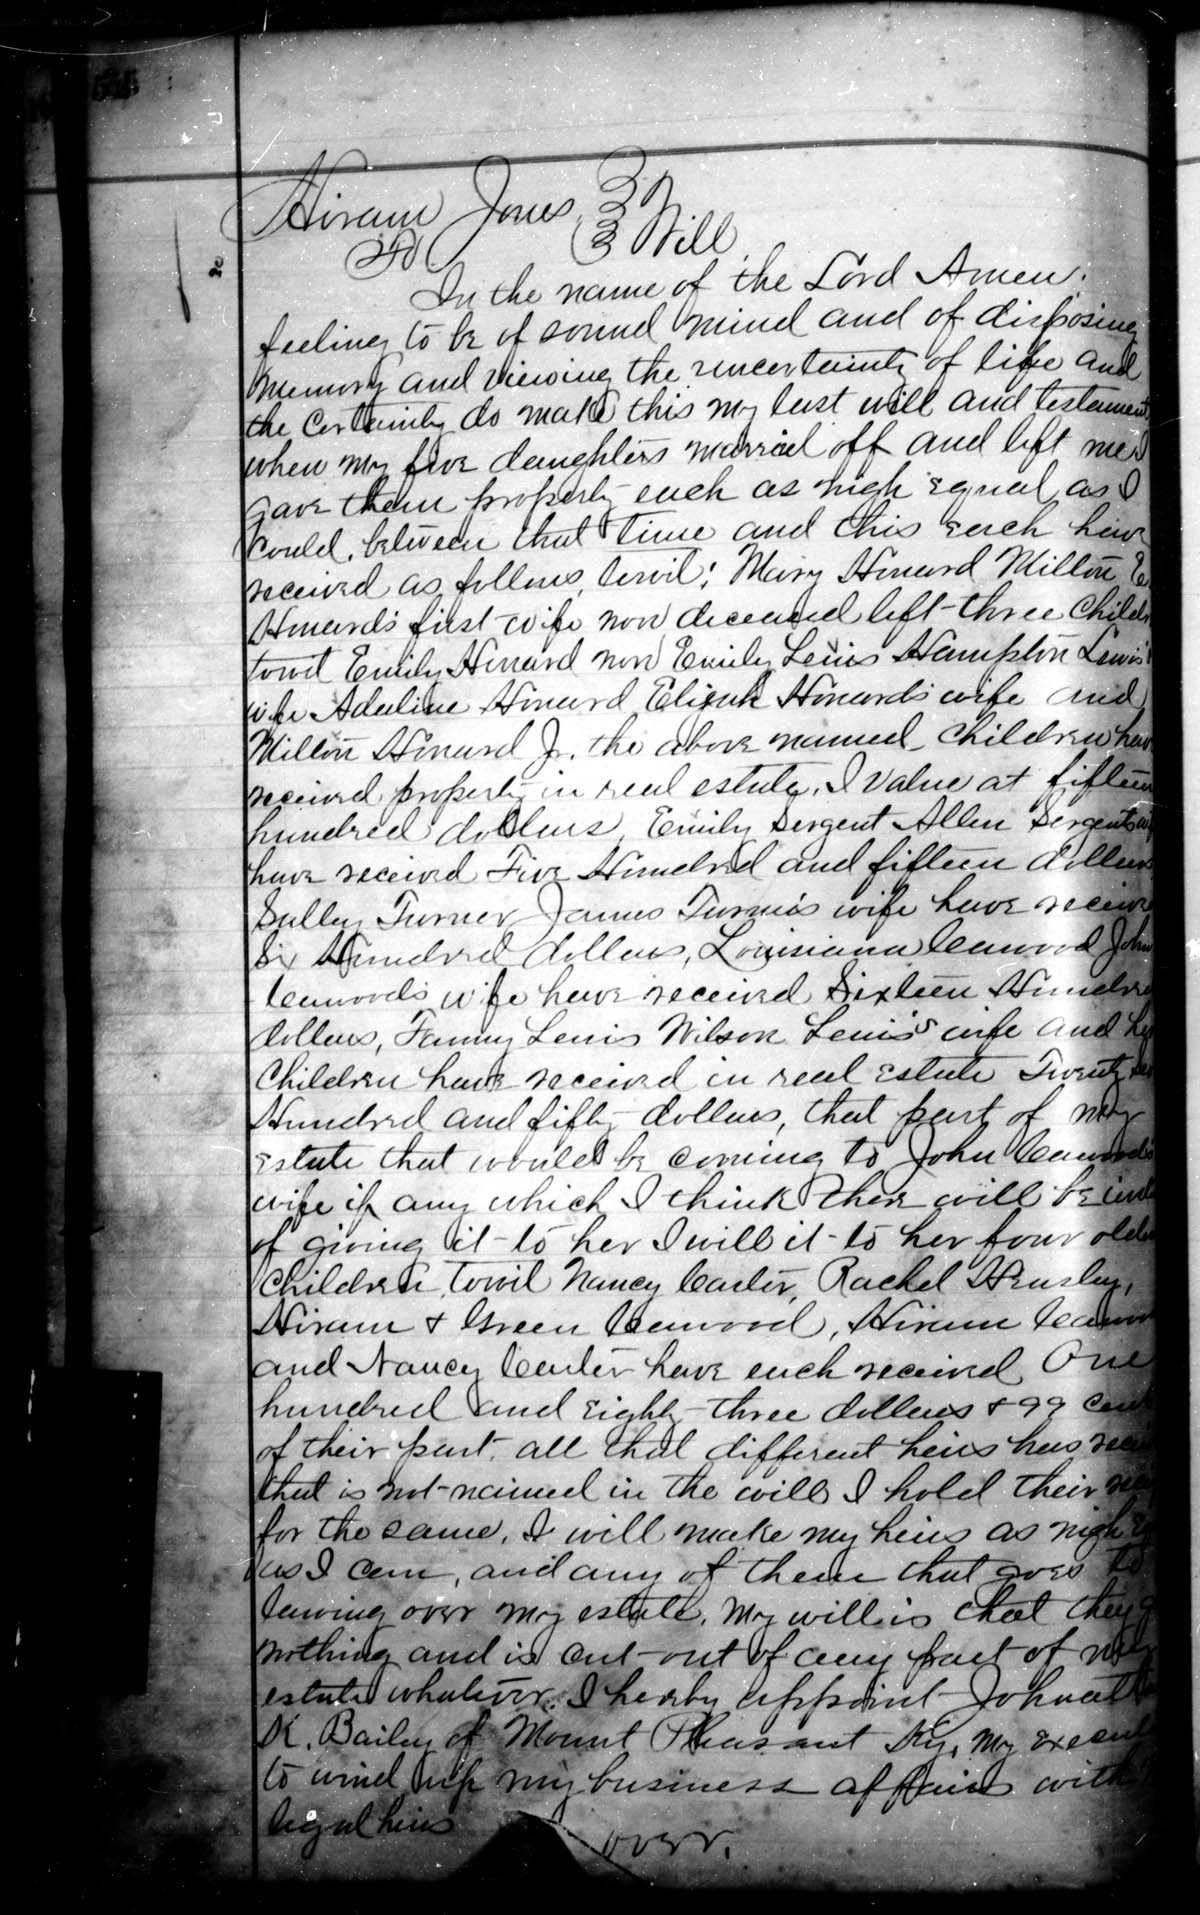 Hiram Jones
To Will
In the name of the Lord Amen.
feeling to be of sound mind and of disposing
memory and viewing the uncertainty of life and
the certainty do make this my last will and testament
when my five daughters married off and left me I
gave them property each as nigh equal as I
could, between that time and this each have
received as follows, towit: Mary Howard Milton
Howard's first wife now deceased left three
towit Emily Howard now Emily Lewis Hampton Lewis
wife Adeline Howard Elijah Howard's wife and
Milton Howard Jr. the above named children have
received property in real estate, I value at fifteen
hundred dollars, Emily Sergent Allen Sergents
have received Five Hundred and fifteen dollars
Salley Turner James Turner's wife have receive
Six Hundred dollars, Louisiana Cawood John
Cawood's wife have received Sixteen Hundred
dollars, Fanny Lewis Wilson Lewis's wife and
Children have received in real estate Twenty
Hundred and fifty dollars, that part of my
estate that would be coming to John Cawood's
wife if any which I think there will be
of giving it to her I will it to her four
children, towit Nancy Carter, Rachel Hensley,
Hiram & Green Cawood, Hiram Cawood
and Nancy Carter have each received One
hundred and eighty three dollars & 99 cent
of their part. all that different heirs has
that is not named in the will I hold their
for the same. I will make my heirs as nigh
as I can, and any of them that goes to
lawing over my estate, my will is that they
nothing and is cut out of any part of my
estate whatever. I hereby appoint
K. Bailey of Mount Pleasant Ky, my
to wind up my business affairs with
legal heirs
over.